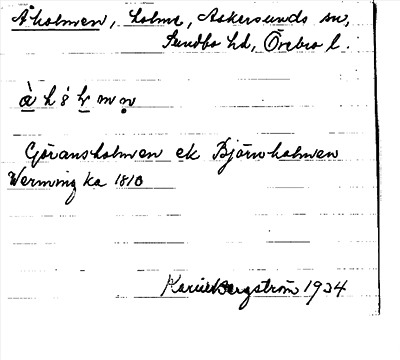 Åholmen, holme, Askersunds sn,
Sundbo hd, Örebro l.
Göransholmen ek Björnholmen
Werming ka 1810
Karin Bergström 1934